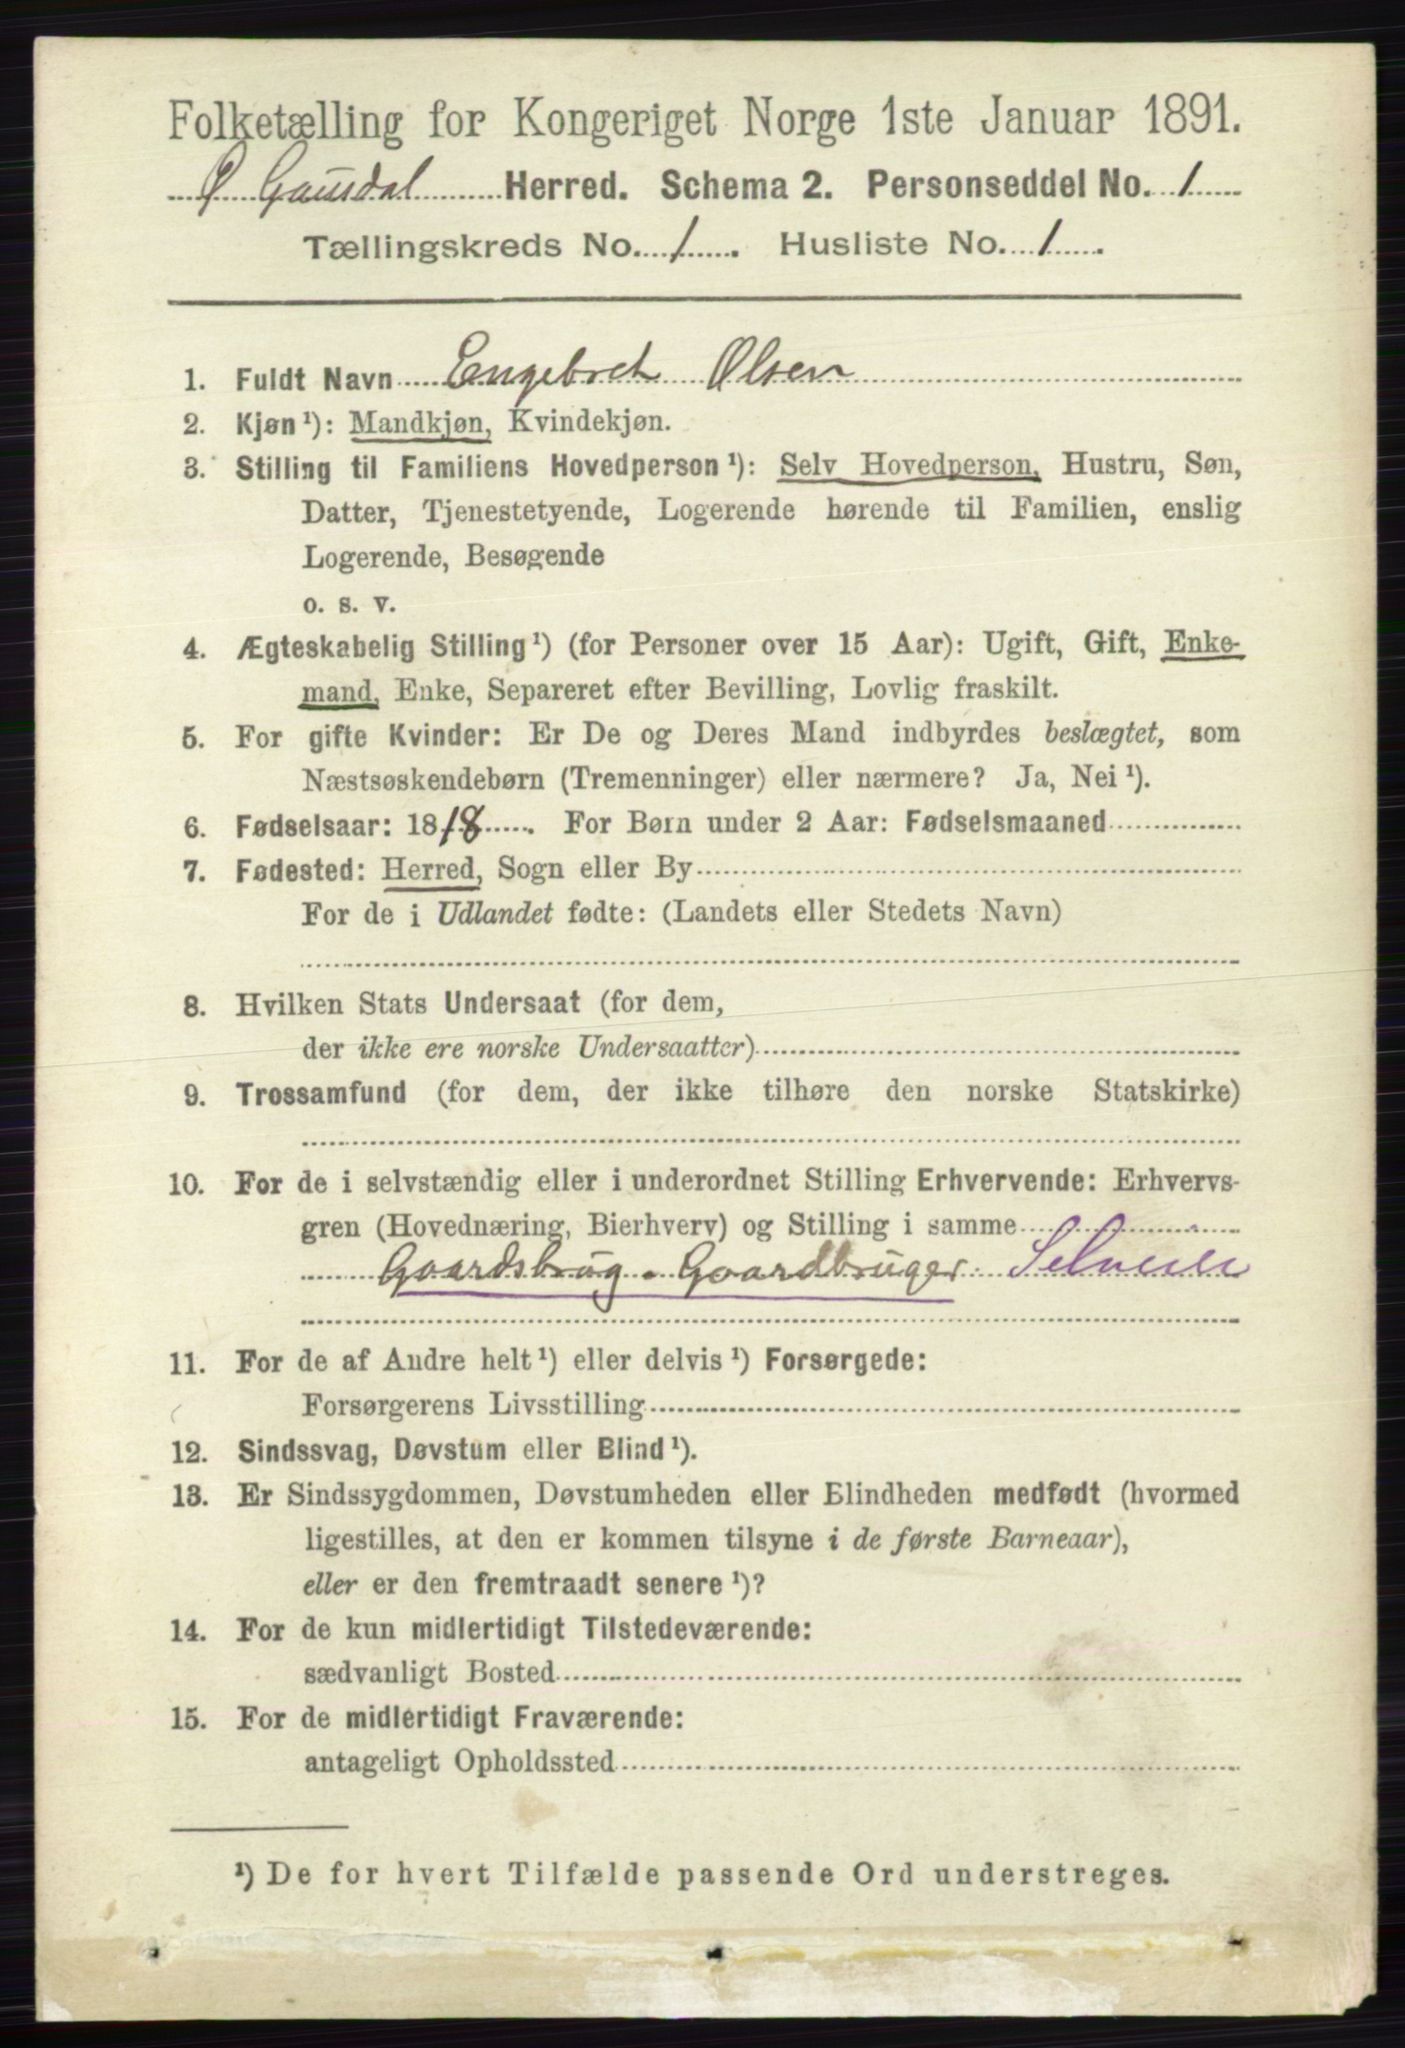 Folketælling for Kongeriget Norge 1ste Januar 1891.
Ø Gausdal Herred. Schema 2. Personseddel No. 1
Tællingskreds No. 1. Husliste No. 1.
1. Fuldt Navn Engebret Olsen
2. Kjøn¹): Mandkjøn, Kvindekjøn.
3. Stilling til Familiens Hovedperson¹): Selv Hovedperson, Hustru, Søn,
Datter, Tjenestetyende, Logerende hørende til Familien, enslig
Logerende, Besøgende
o. s. v.
4. Ægteskabelig Stilling¹) (for Personer over 15 Aar): Ugift, Gift, Enke-
mand, Enke, Separeret efter Bevilling, Lovlig fraskilt.
5. For gifte Kvinder: Er De og Deres Mand indbyrdes beslægtet, som
Næstsøskendebørn (Tremenninger) eller nærmere? Ja, Nei¹).
6. Fødselsaar: 1818. For Børn under 2 Aar: Fødselsmaaned
7. Fødested: Herred, Sogn eller By
For de i Udlandet fødte: (Landets eller Stedets Navn)
8. Hvilken Stats Undersaat (for dem,
der ikke ere norske Undersaatter)
9. Trossamfund (for dem, der ikke tilhøre den norske Statskirke)
10. For de i selvstændig eller i underordnet Stilling Erhvervende: Erhvervs-
gren (Hovednæring, Bierhverv) og Stilling i samme
Gaardsbrug. Gaardbruger. Selveier
11. For de af Andre helt¹) eller delvis¹) Forsørgede:
Forsørgerens Livsstilling
12. Sindssvag, Døvstum eller Blind¹).
13. Er Sindssygdommen, Døvstumheden eller Blindheden medfødt (hvormed
ligestilles, at den er kommen tilsyne i de første Barneaar),
eller er den fremtraadt senere¹)?
14. For de kun midlertidigt Tilstedeværende:
sædvanligt Bosted
15. For de midlertidigt Fraværende:
antageligt Opholdssted
¹) De for hvert Tilfælde passende Ord understreges.